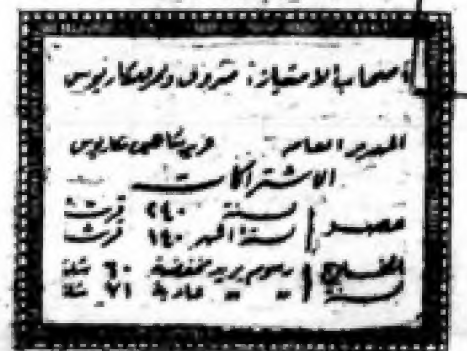 أصحاب الامتياز: صروف ونمر ومكاريوس
المدير العام عزيز شاهين مكاريوس
الاشتراكات
مصر سنة ٢٤٠ قرشا
ستة أشهر ١٤٠ قرشا
الخارج رسوم بريد مخفضة ٦٠ شلنا
سنة " " عادية ٧١ شلنا